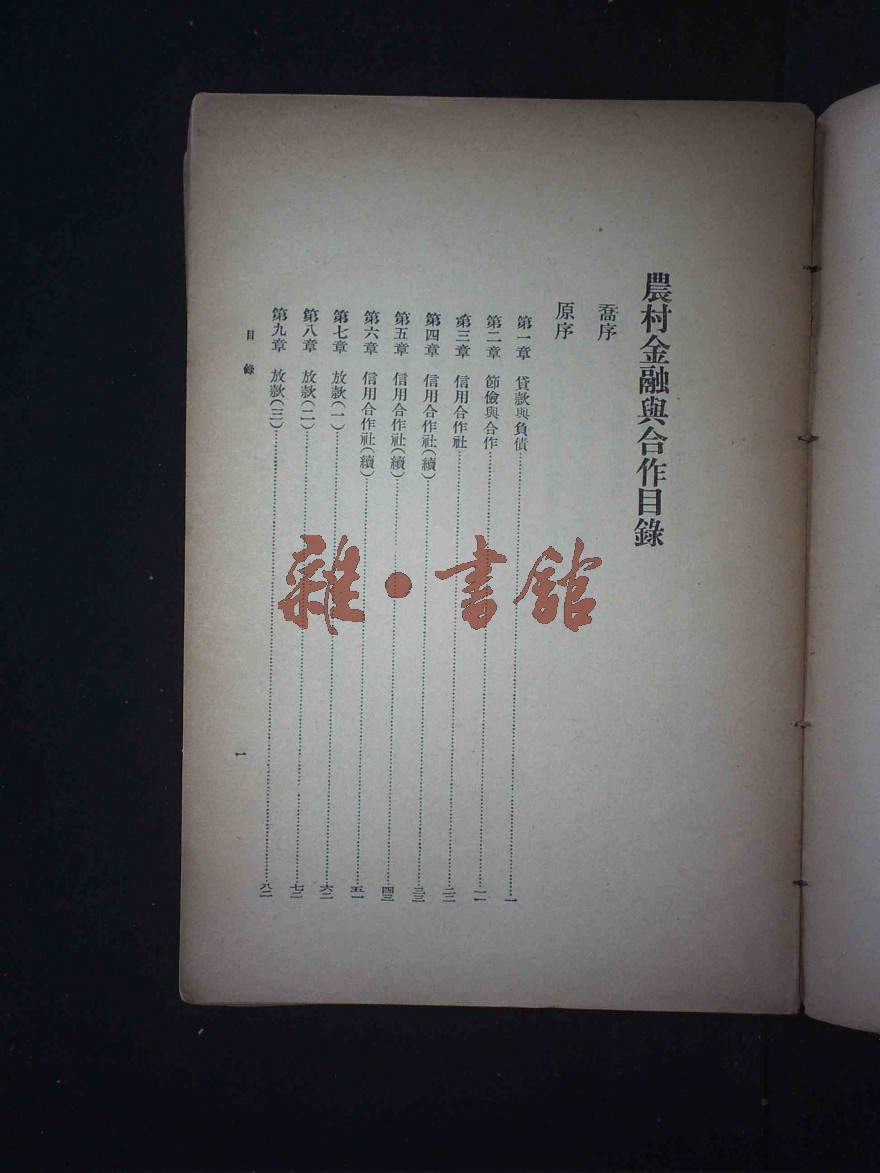 農村金融與合作目錄
喬序
原序
第一章　貸款與負債……一
第二章　節儉與合作……一一
第三章　信用合作社……二三
第四章　信用合作社(續)……三三
第五章　信用合作社(續)……四三
第六章　信用合作社(續)……五一
第七章　放款(一)……六二
第八章　放款(二)……七二
第九章　放款(三)……八二
目錄
一
雜·書館